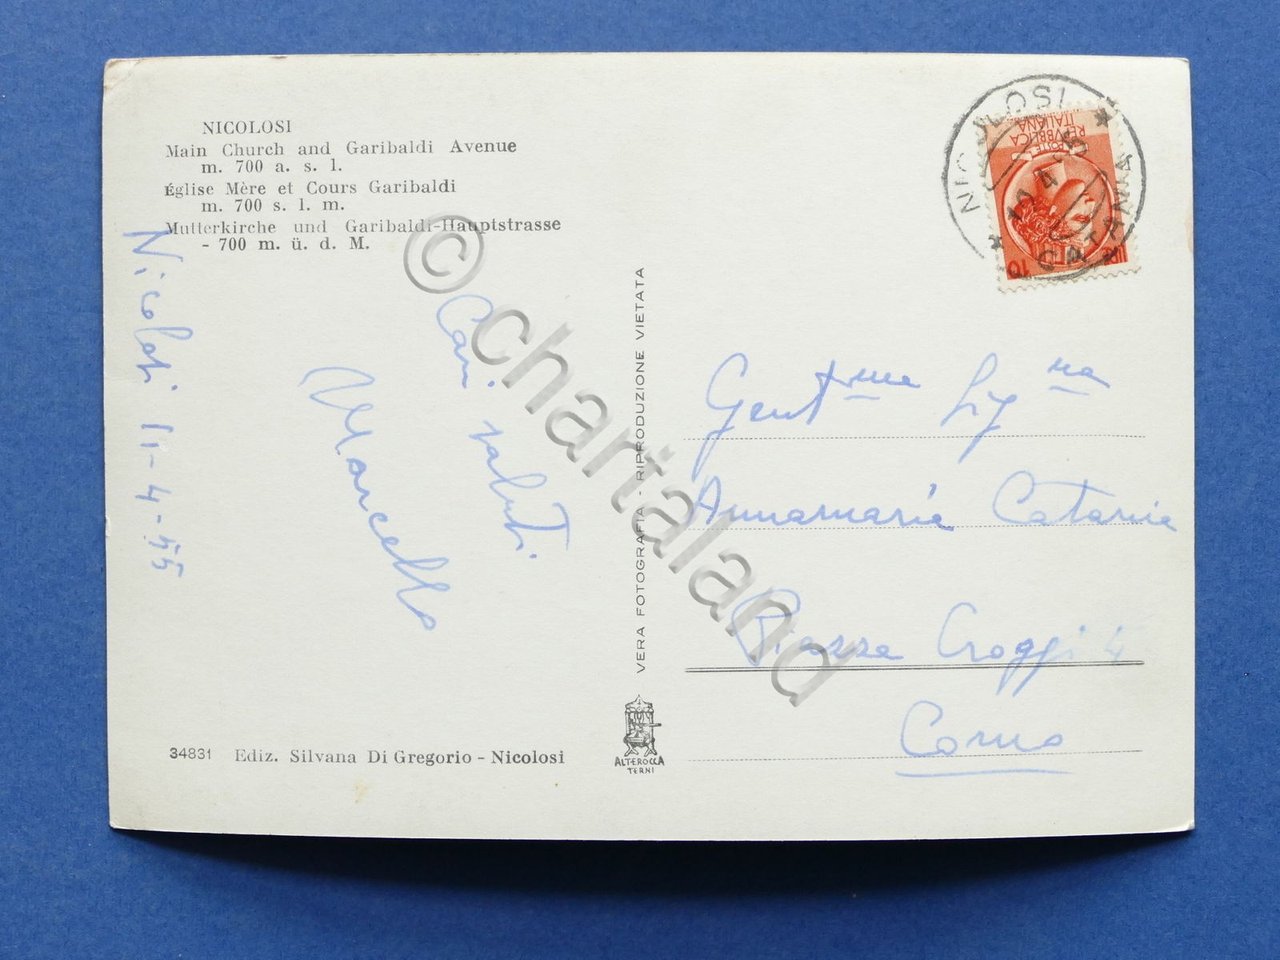 NICOLOSI
Main Church and Garibaldi Avenue
m. 700 a. s. l.
Église Mère et Cours Garibaldi
m. 700 s. l. m.
Mutterkirche und Garibaldi-Hauptstrasse
- 700 m. ü. d. M.
Nicolosi 11-4-55
Cari saluti
Marcello
34831 Ediz. Silvana Di Gregorio - Nicolosi
VERA FOTOGRAFIA - RIPRODUZIONE VIETATA
ALTEROCCA
TERNI
NICOLOSI
CATANIA
POSTE
REPVBBLICA
ITALIANA
LIRE 10
Gent.ma Sig.na
Annamaria Catania
Piazza Croggi 4
Como
© chartaland